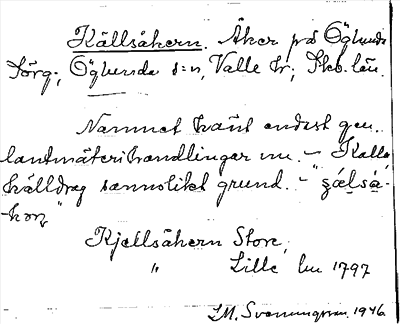 Källsåkern. Åker på Öglunda
Torg; Öglunda s:n, Valle hr; Skb. län.
Namnet känt endast gen.
lantmäterihandlingar nu. – Kalla
källdrag sannolikt grund. – "
Kjellsåkern Store,
" Lille lm 1797
I.M. Svenungson 1946